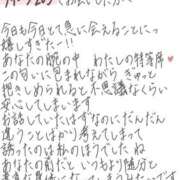 今も今日とて急に会えることにっ
嬉しすぎたー!!
あなたの腕の中 わたしの特等席♥
この匂いに包まれながら ぎゅっと
抱きしめられると不思議なくらい
安心してしまいます
お話してたはずなのにだんだん
違うことばかり考えてしまって
誘ったのは私のほうでしたね
あなたの前だと いつもより随分と